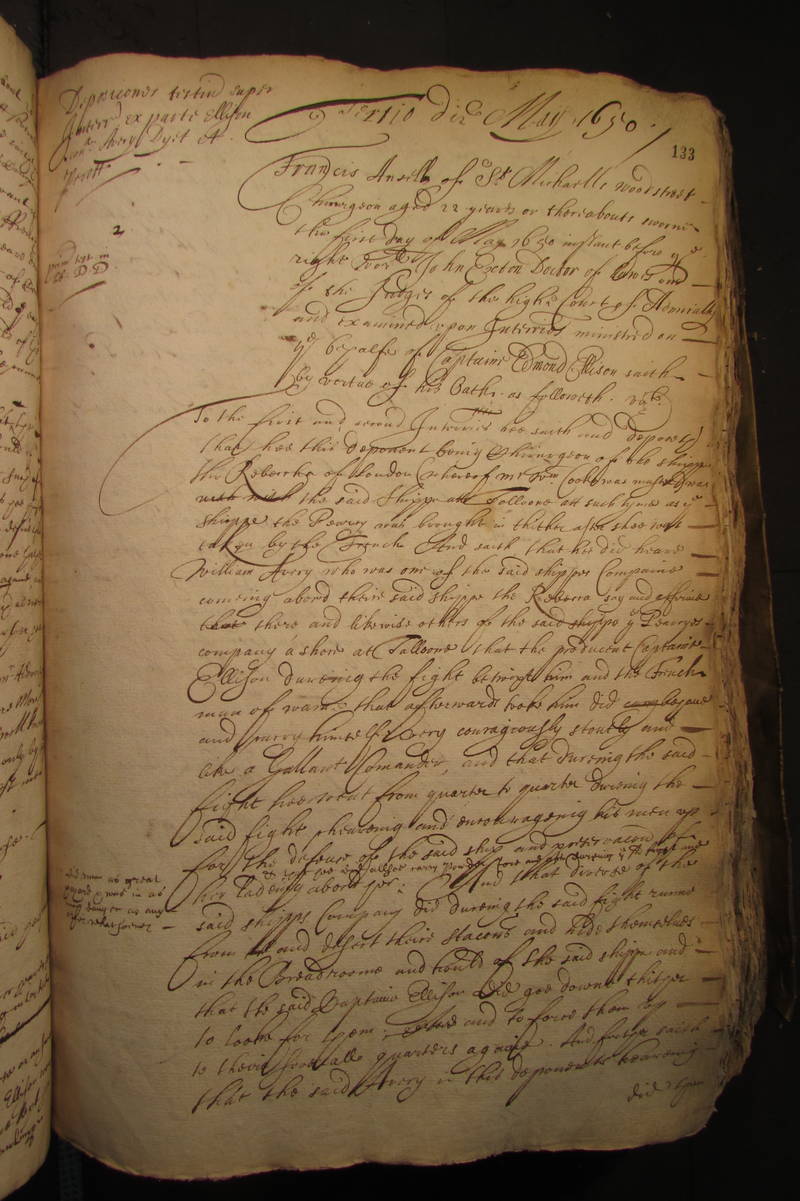 Deposiciones testium super
Interrs ex parte Ellison
con Avery Dyet et
Tertio die May 1650
133
Francis Ansell of St Michaells woodstreet
Chirurgeon aged 22 yeares or thereabouts sworne
the first day of May 1650 instant before ye
right worll John Exton Doctor of lawes one
of the Judges of the highe Court of Admiralty
and examined upon Interries ministred on
ye behalfe of Captaine Edmond Ellison saith
by vertue of his Oath as followeth. vizt.
2
To the first and second Interries hee saith and deposeth
that hee this deponent being Chirurgeon of the shippe
the Rebecka of London whereof mr Cooke was master was
with the said Shippe att Tolloone att such tyme as ye
shippe the Pearey was brought in thither after shee was
taken by the French And saith that hee did heare
William Avery who was one of the said shippes Companie
comeing abord theire said shippe the Rebecca say and affirme
there and likewise others of the said shippe ye Pearyes
company a shore at Tolloone that the producent Captaine
Ellison dureing the fight betwixt him and the French
man of warre that afterwards tooke him did behave
and carry himselfe very couragiously stoutly and
like a Gallant Comander, and that dureing the said
fight hee went from quarter to quarter dureing the
said fight cheereing and encourageing his men up
for the defence of the said ship and preservacon of
her ladeing abord her: And that diverse of the
said shipps Company did dureing the said fight runne
from and desert theire stacons and hide themselves
in the Breadroome and hould of the said shippe and
that the said Captaine Ellison did goe downe thither
to looke for them and to force them up
to their severall quarters againe. And further saith
that the said Avery in this deponents heareing
did then